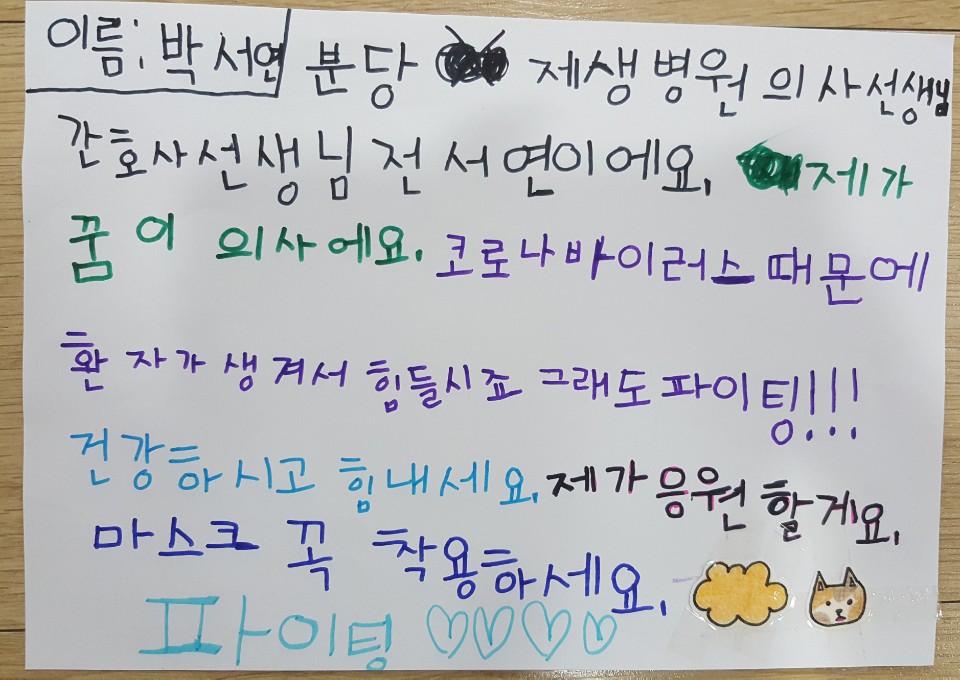 이름: 박서연 분당 제생병원 의사선생님
간호사선생님 전 서연이에요. 제가
꿈이 의사에요. 코로나바이러스 때문에
환자가 생겨서 힘들시죠 그래도 파이팅!!!
건강하시고 힘내세요. 제가 응원할게요.
마스크 꼭 착용하세요.
파이팅 ♡♡♡♡